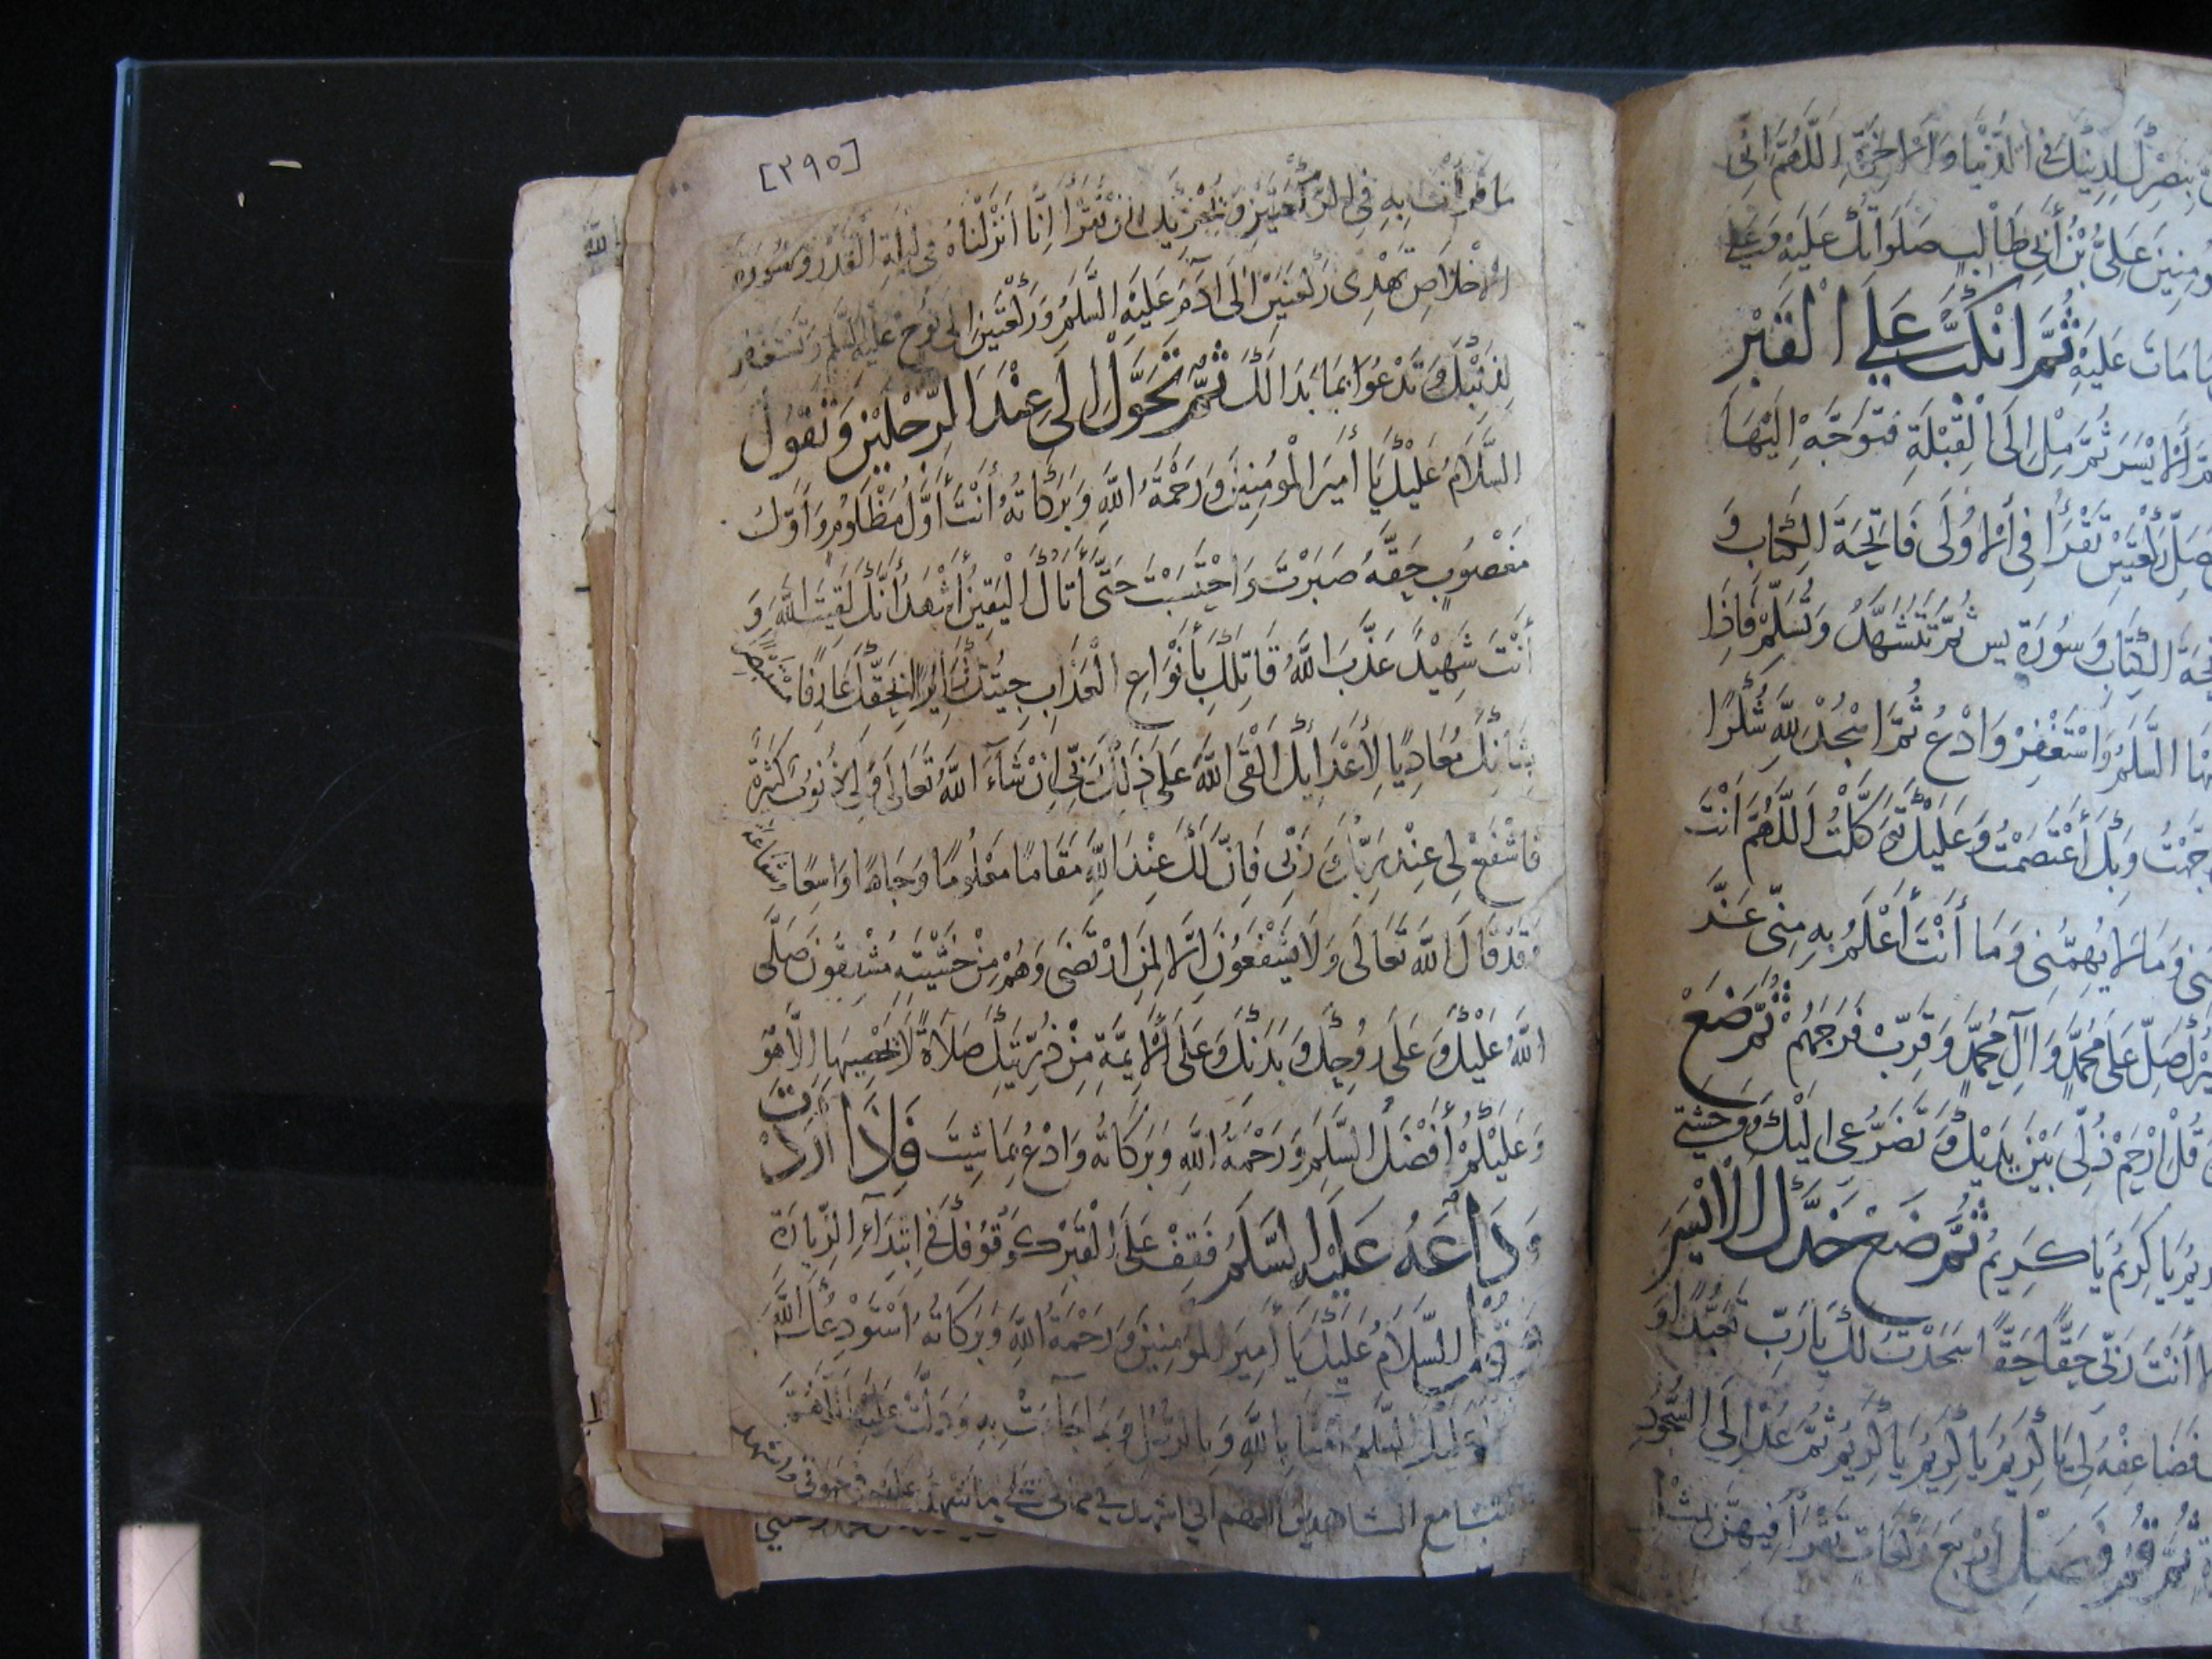 ينصرك لدينك في الدنيا والآخرة اللهم اني
ومنين علي بن أبي طالب صلواتك عليه وعلى
ما مات عليه ثم انكب على القبر
الايسر ثم مل الى القبلة فتوجه اليها
صل ركعتين تقرأ في الاولى فاتحة الكتاب و
حة الكتاب وسورة يس ثم تتشهد وتسلم فاذا
السلم واستغفر وادع ثم اسجد لله شكرا
جهت وبك أعتصمت وعليك توكلت اللهم انت
ني وما لا يهمني وما أنت أعلم به مني عز
صل على محمد وآل محمد وقرب فرجهم ثم ضع
قل ارحم ذلي بين يديك وتضرعي اليك ووحشتي
يا كريم يا كريم ثم ضع خدك الايسر
أنت ربي حقا حقا سجدت لك يا رب تعبدا و
فضاعفه لي يا كريم يا كريم يا كريم ثم عد الى السجود
ثم قم وصل أربع ركعات تقرأ فيهن بمثل
[٣٩٥]
ما قرأت به في الركعتين ويجزيك ان تقرأ انا أنزلناه في ليلة القدر وسورة
الاخلاص تهدى ركعتين الى آدم عليه السلم وركعتين الى نوح عليه السلم وتستغفر
لذنبك وتدعوا بما بدا لك ثم تحول الى عند الرجلين وتقول
السلام عليك يا أمير المؤمنين ورحمة الله وبركاته أنت أول مظلوم وأول
مغصوب حقه صبرت واحتسبت حتى أتاك اليقين أشهد أنك لقيت الله و
أنت شهيد عذب الله قاتلك بأنواع العذاب جيتك زايرا بحقك عارفا مستبصرا
بشأنك معاديا لأعدايك القى الله على ذلك ربي ان شاء الله تعالى ولي ذنوب كثيرة
فاشفع لي عند ربك ربي فان لك عند الله مقاما معلوما وجاها واسعا وشفاعة
وقد قال الله تعالى ولا يشفعون الا لمن ارتضى وهم من خشيته مشفقون صلى
الله عليك وعلى روحك وبدنك وعلى الايمة من ذريتك صلاة لا يحصيها الا هو
وعليكم أفضل السلم ورحمة الله وبركاته وادع بما شيت فاذا أردت
وداعه عليه السلم فقف على القبر كوقوفك في ابتداء الزيارة
وقل السلام عليك يا أمير المومنين ورحمة الله وبركاته أستودعك الله
عليك السلم آمنا بالله وبالرسل وبما جاءت به ودلت عليه اللهم
فاكتبنا مع الشاهدين اللهم اني اشهد في مماتي على ما شهدت عليه في حيوتي واشهد